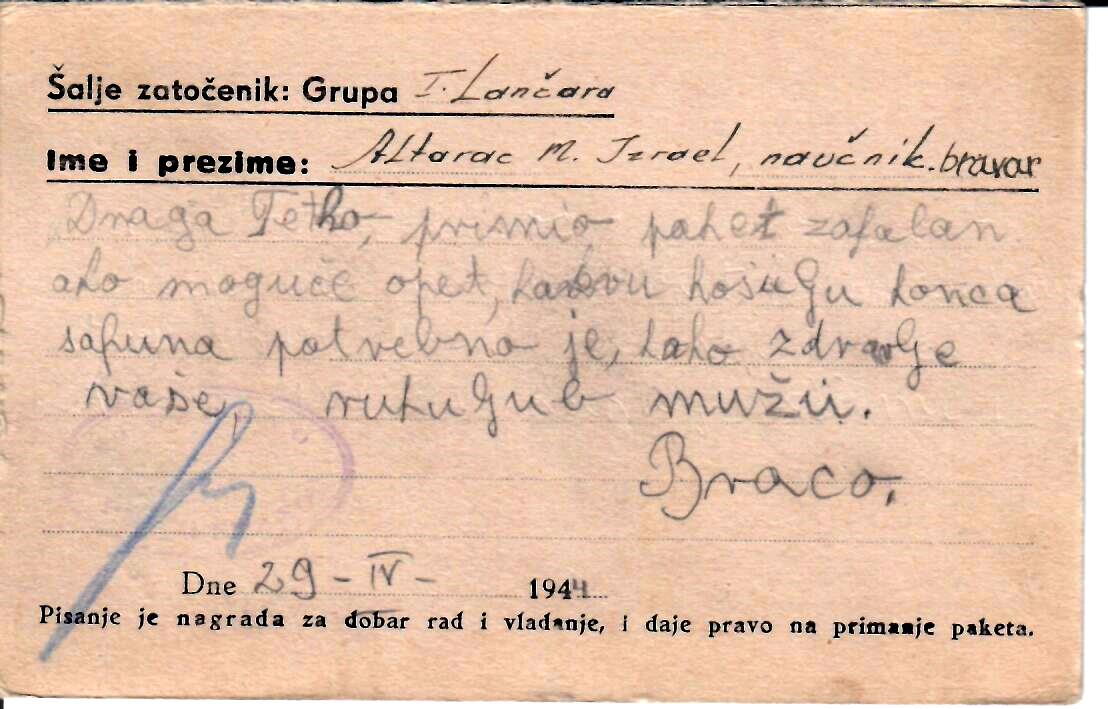 Šalje zatočenik: Grupa I. Lančara
Ime i prezime: Altarac M. Izrael, naučnik. bravar
Draga Tetko, primio paket zafalan
ako moguće opet, košulju konca
safuna potrebno je, kako zdravlje
vaše, rukuljub mužu.
Braco.
Dne 29 - IV - 1944
Pisanje je nagrada za dobar rad i vladanje, i daje pravo na primanje paketa.